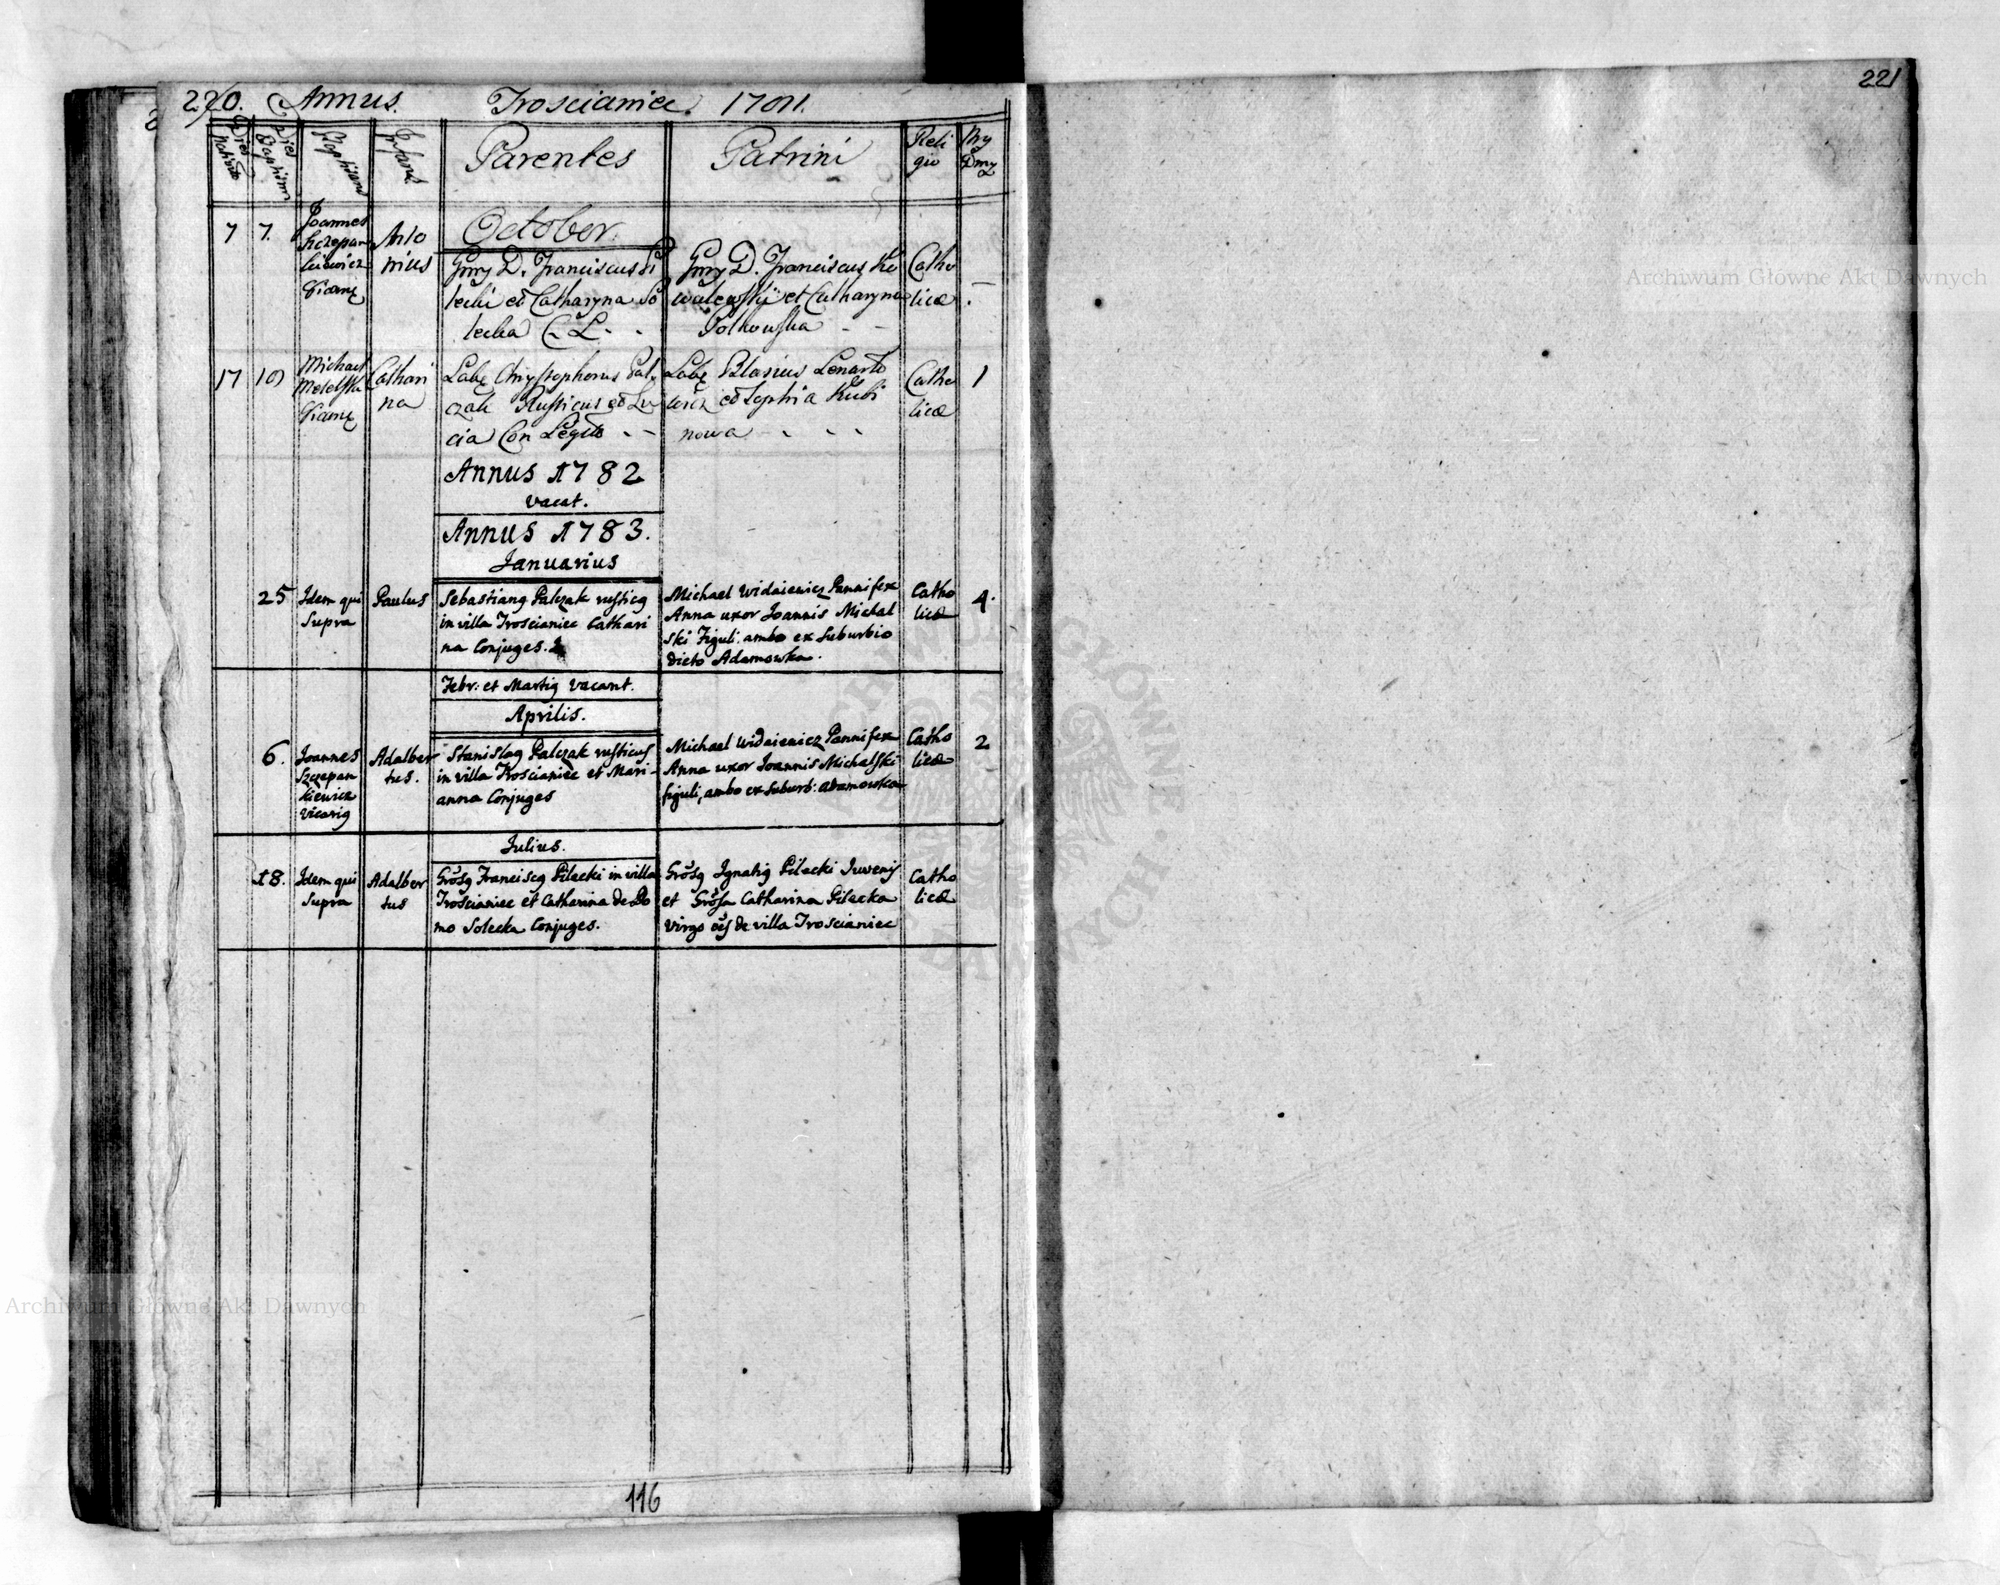 220. Annus. Troscianiec. 1781.
221
Dies Nativita
Dies Baptism
Baptisans
Infans
Parentes
Patrini
Reli
gio
Nrg
Dmg
October.
7
7.
Joannes
Szczepan
kiewicz
Vicarig
Anto
nius
Gnrg D. Franciscus Pi
lecki et Catharyna So
lecka C. L. - -
Gnrg D. Franciscus Ko
walewskij et Catharyna
Polkowska - -
Catho
licæ
17
19
Michael
Meselski
Vicarig
Cathari
na
Labg Chrystophorus Pal,
czak Rusticus et Lu
cia Con Legit - -
Labg Blasius Lenarto
wicz et Sophia Kubi
nowa - - -
Catho
licæ
1
Annus 1782
vacat.
Annus 1783.
Januarius
25
Idem qui
supra
Paulus
Sebastiang Palczak rusticg
in villa Troscianiec Cathari
na Conjuges.
Michael Widaiewicz Pannifex
Anna uxor Joannis Michal
ski Figuli. ambo ex Suburbio
dicto Adamowka.
Catho
licæ
4.
Febr: et Martig vacant.
Aprilis.
6.
Joannes
Szczepan
kiewicz
Vicarig
Adalber
tus.
Stanislag Palczak rusticus
in villa Troscianiec et Mari-
anna Conjuges
Michael Widaiewicz Pannifex
Anna uxor Joannis Michalski
figuli, ambo ex suburb: adamowka
Catho
licæ
2
Julius.
18.
Idem qui
supra
Adalber
tus
Grosg Franciscg Pilecki in villa
Troscianiec et Catharina de Do
mo Solecka Conjuges.
Grosg Ignatig Pilecki Juvenis
et Grosa Catharina Pilecka
virgo oes de villa Troscianiec
Catho
licæ
116
Archiwum Główne Akt Dawnych
Archiwum Główne Akt Dawnych
ARCHIWUM GŁÓWNE AKT DAWNYCH